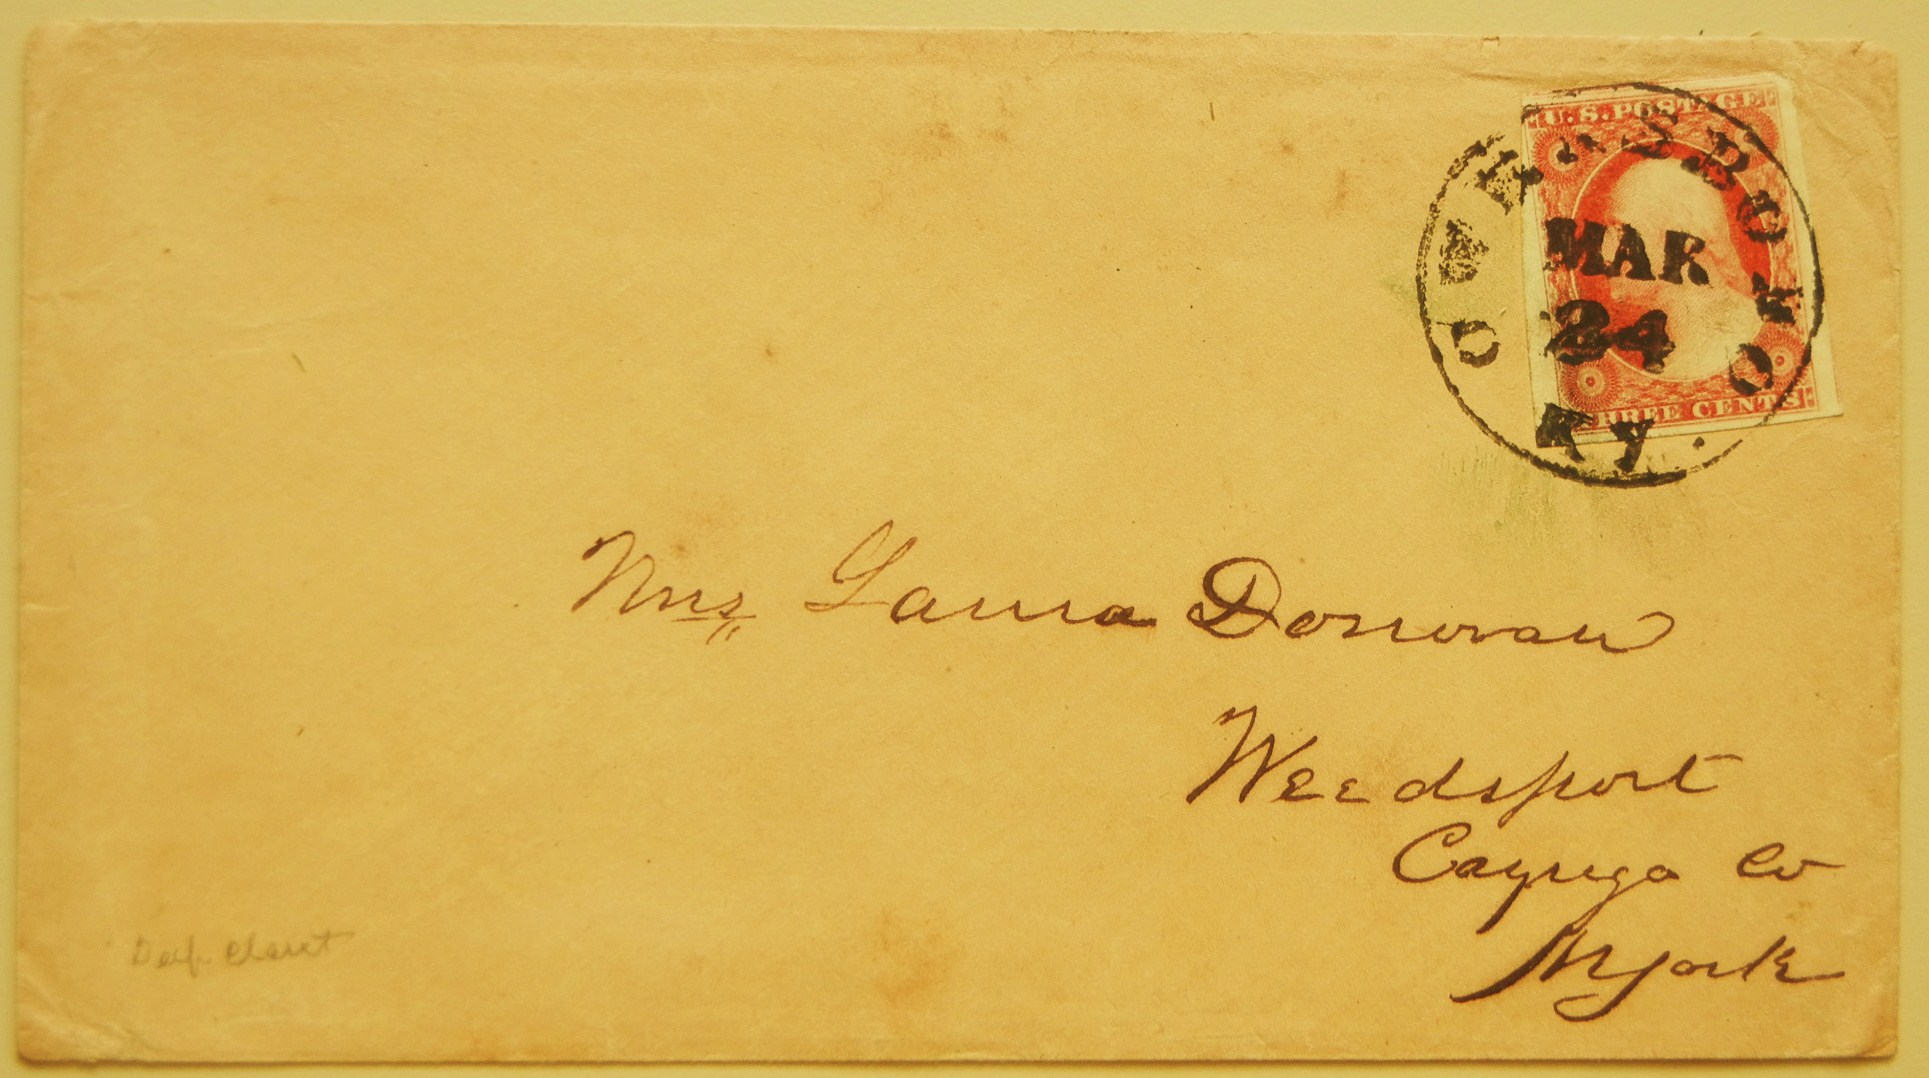 U.S. POSTAGE
OWENSBORO
MAR
24
KY.
THREE CENTS
Mrs, Laura Donovan
Weedsport
Cayuga Co
N York
Deep Claret